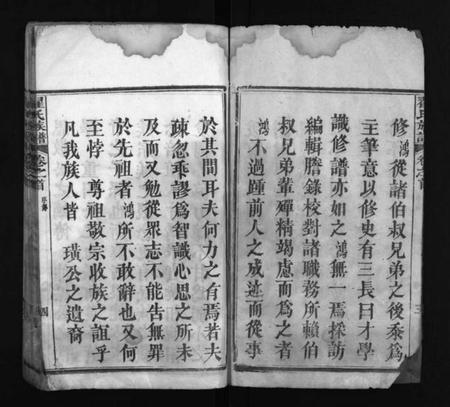 修鴻從諸伯叔兄弟之後忝爲
主筆意以修史有三長曰才學
識修譜亦如之鴻無一焉採訪
編輯謄錄校對諸職務所賴伯
叔兄弟輩殫精竭慮而爲之者
鴻不過踵前人之成迹而從事
於其間耳夫何力之有焉若夫
疎忽乖謬爲智識心思之所未
及而又勉從眾志不能告無罪
於先祖者鴻所不敢辭也又何
至悖 尊祖敬宗收族之誼乎
凡我族人皆 璜公之遺裔
氏族譜 卷之首
四
氏族譜 卷之首
三